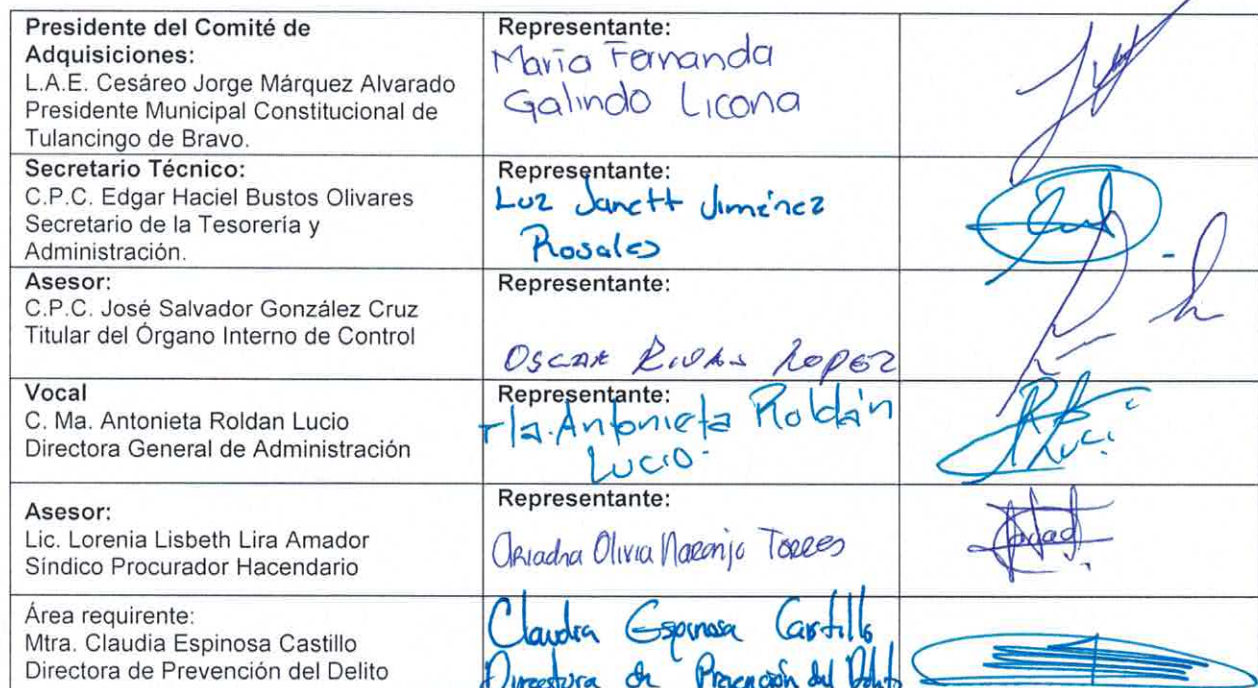 Presidente del Comité de
Adquisiciones:
L.A.E. Cesáreo Jorge Márquez Alvarado
Presidente Municipal Constitucional de
Tulancingo de Bravo.
Representante:
María Fernanda
Galindo Licona
Secretario Técnico:
C.P.C. Edgar Haciel Bustos Olivares
Secretario de la Tesorería y
Administración.
Representante:
Luz Janett Jiménez
Rosales
Asesor:
C.P.C. José Salvador González Cruz
Titular del Órgano Interno de Control
Representante:
OSCAR RIVAS LOPEZ
Vocal
C. Ma. Antonieta Roldan Lucio
Directora General de Administración
Representante:
Ma. Antonieta Roldán
Lucio.
Asesor:
Lic. Lorenia Lisbeth Lira Amador
Síndico Procurador Hacendario
Representante:
Ariadna Olivia Naranjo Torres
Área requirente:
Mtra. Claudia Espinosa Castillo
Directora de Prevención del Delito
Claudia Espinosa Castillo
Directora de Prevención del Delito